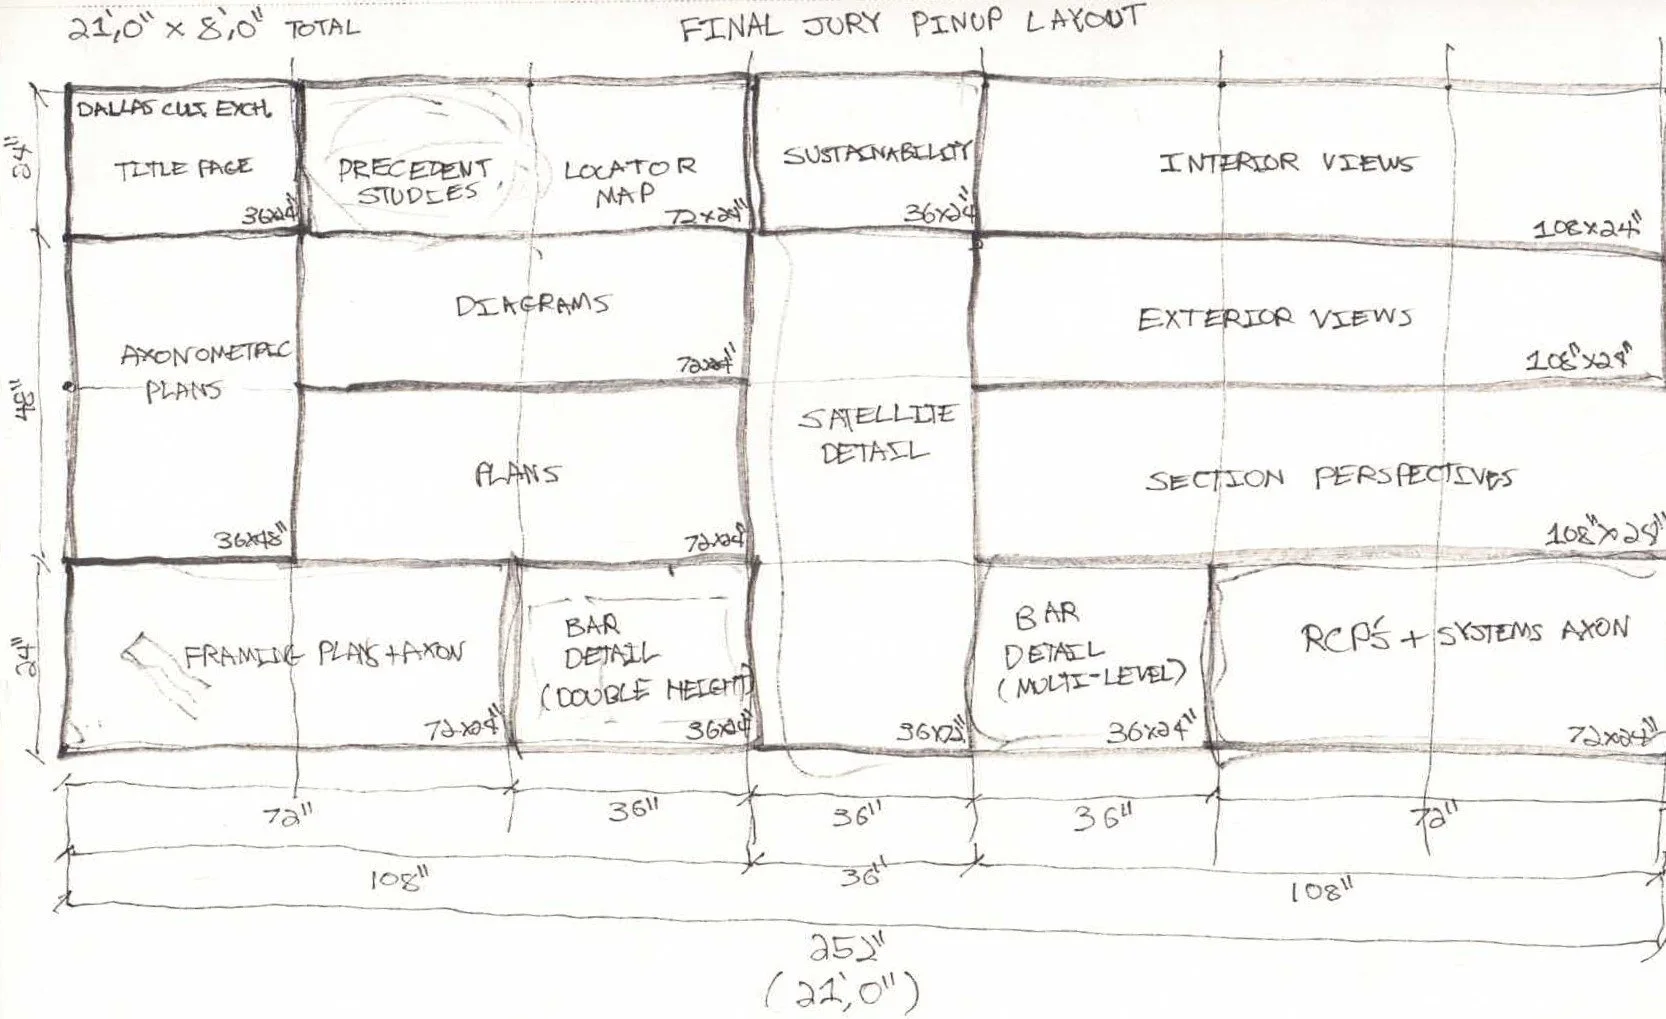 21',0" x 8',0" TOTAL
FINAL JURY PINUP LAYOUT
DALLAS CULT. EXCH.
TITLE PAGE
36x24"
PRECEDENT
STUDIES
LOCATOR
MAP
72x24"
SUSTAINABILITY
36x24"
INTERIOR VIEWS
108x24"
24"
DIAGRAMS
72x24"
EXTERIOR VIEWS
108"x24"
AXONOMETRIC
PLANS
36x48"
48"
PLANS
72x24"
SATELLITE
DETAIL
36x72"
SECTION PERSPECTIVES
108"x24"
24"
FRAMING PLANS + AXON
72x24"
BAR
DETAIL
(DOUBLE HEIGHT)
36x24"
BAR
DETAIL
(MULTI-LEVEL)
36x24"
RCP'S + SYSTEMS AXON
72x24"
72"
36"
36"
36"
72"
108"
36"
108"
252"
(21',0")